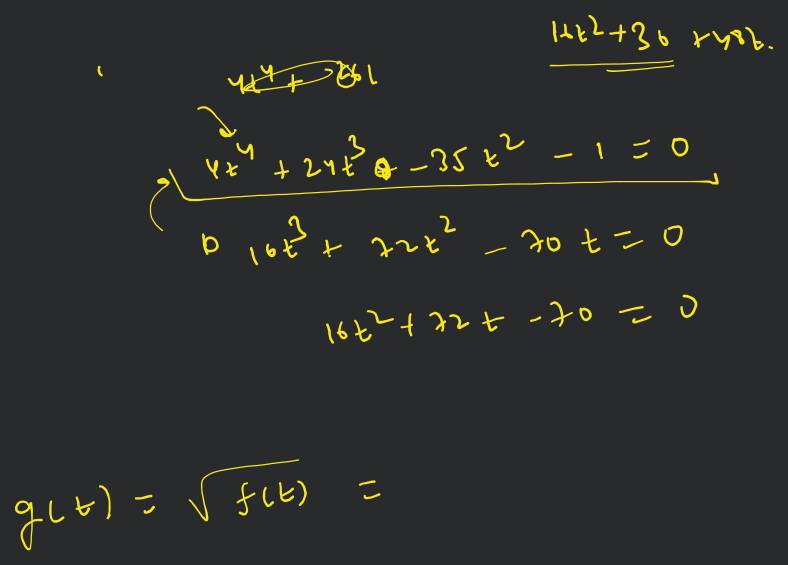 16t² + 36 + 48t.
4t⁴ +
4t⁴ + 24t³ - 35t² - 1 = 0
D 16t³ + 72t² - 70t = 0
16t² + 72t - 70 = 0
g(t) = √f(t) =